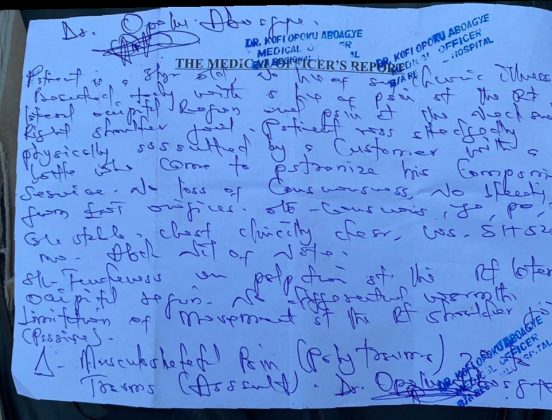 Dr. Opoku Aboagye.
DR. KOFI OPOKU ABOAGYE
MEDICAL OFFICER
DR. KOFI OPOKU ABOAGYE
MEDICAL OFFICER
HOSPITAL
THE MEDICAL OFFICER'S REPORT
Patient is a old, no of chronic illness
Presented today with a of pain at the Rt
lateral occipital Region and pain at the neck and
Right shoulder joint. Patient was allegedly
physically assaulted by a Customer with a
bottle who came to patronize his Company
Service. No loss of Consciousness, No bleeding
from orifices. conscious,
stable. chest clinically clear, CVS. S1+S2+
mo. Abd. Nil of Note.
Tenderness on palpation at the Rt lateral
occipital region. No differential warmth.
Limitation of movement at the Rt shoulder joint
(Passive).
Δ - Musculoskeletal Pain (Polytrauma) 2°
Trauma (Assault). Dr. Opoku Aboagye
DR. KOFI OPOKU ABOAGYE
MEDICAL OFFICER
HOSPITAL